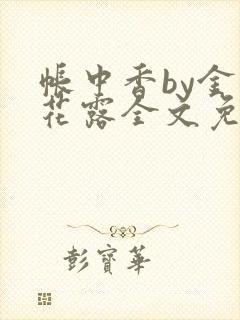 帐中香by金
花露全文免
彭寶華